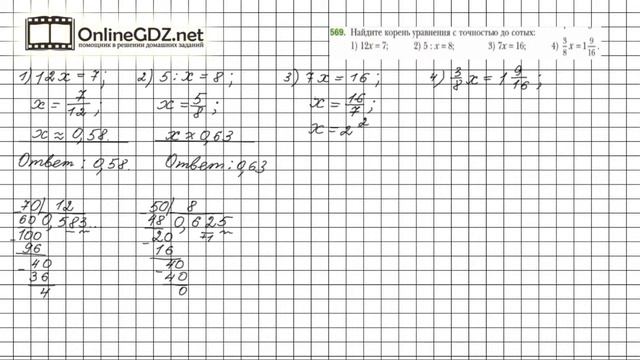 OnlineGDZ.net
помощник в решении домашних заданий
569. Найдите корень уравнения с точностью до сотых:
1) 12x = 7; 2) 5 : x = 8; 3) 7x = 16; 4) 3/8 x = 1 9/16.
1) 12x = 7; 2) 5 : x = 8; 3) 7x = 16; 4) 3/8 x = 1 9/16;
x = 7/12; x = 5/8; x = 16/7;
x ≈ 0,58. x ≈ 0,63 x = 2 2
Ответ: 0,58. Ответ: 0,63
70 12 50 8
60 0,583.. 48 0,625
100 20
96 16
40 40
36 40
4 0